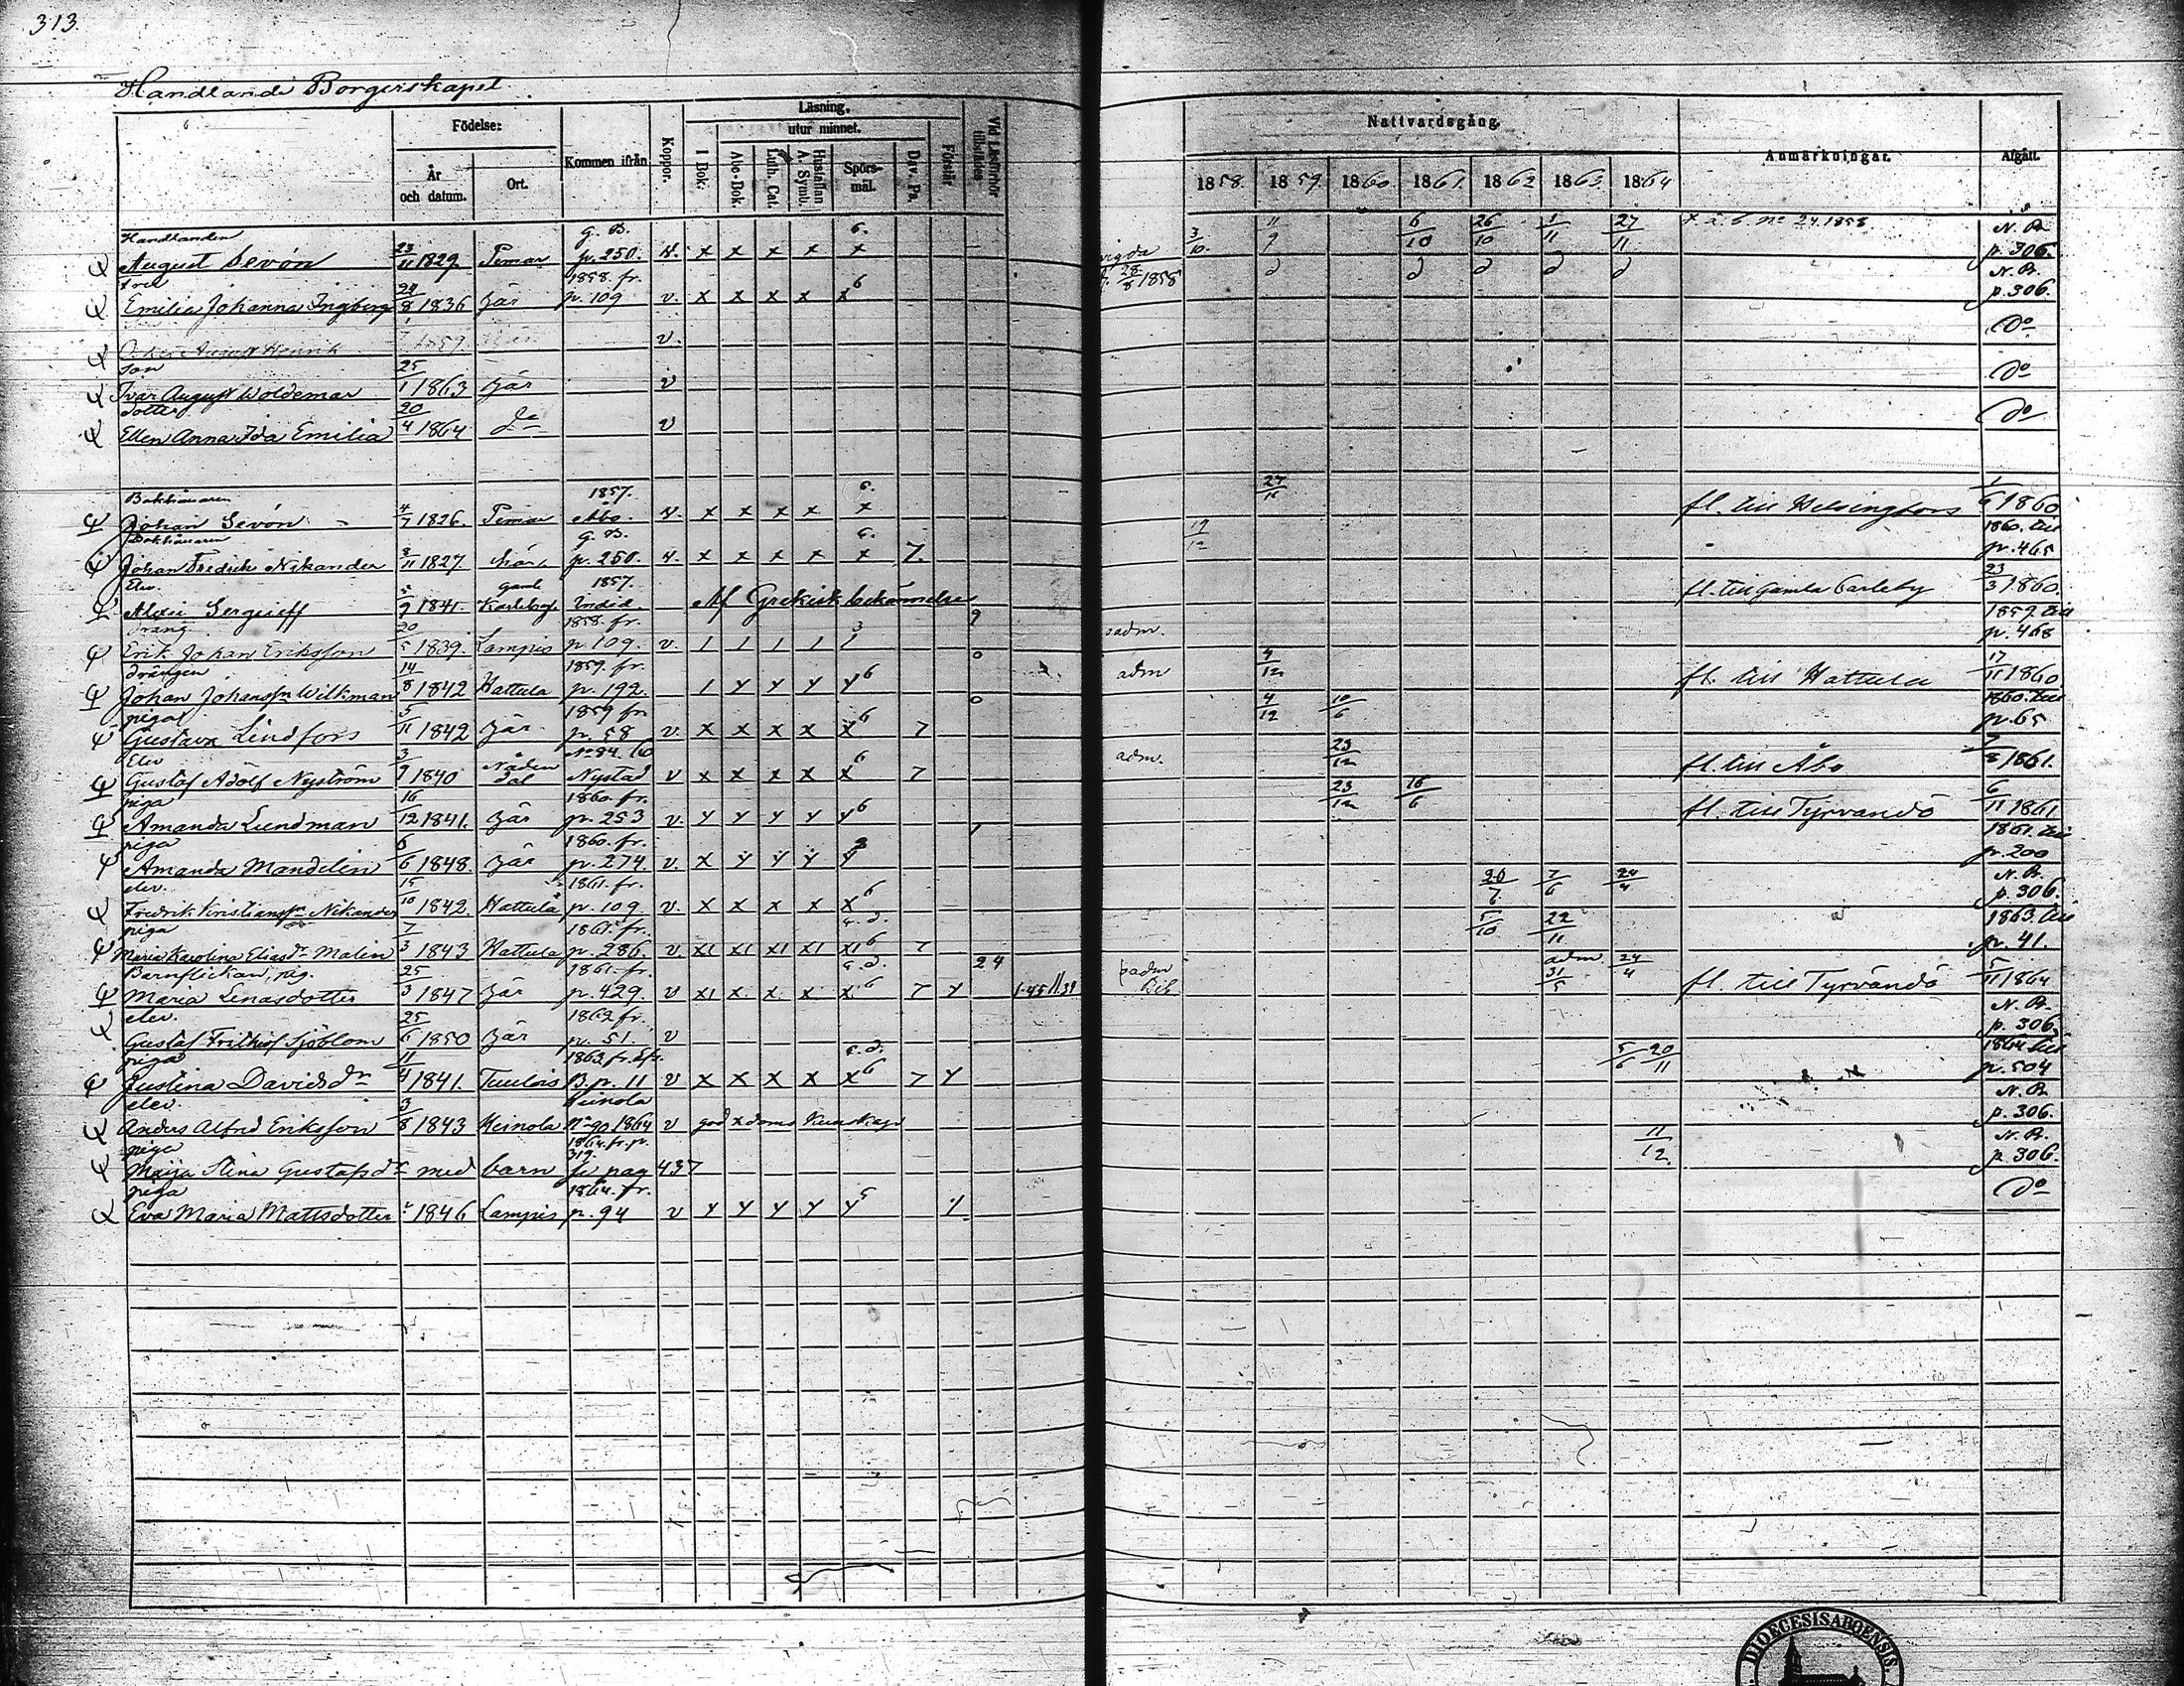 313.
Handlande Borgerskapet
Födelse:
År och datum.
Ort.
Kommen ifrån
Koppor.
Läsning.
I Bok:
utur minnet.
Abc-Bok.
Luth. Cat.
Hustaflan A. Symb.
Spörsmål.
Dav. Ps.
Förstår
Vid Läsförhör tillstädes
Nattvardsgång.
1858. 1859. 1860. 1861. 1862 1863. 1864
Anmärkningar.
Afgått.
Handlanden g. B. 6.
August Sevón 23/11 1829. Pemar p. 250. x x x x x 3/10. 11/9 6/10 26/10 1/11 27/11 N. B. p. 306.
1858. fr.
Emilia Johanna Ingberg 24/8 1836 här p. 109 v. x x x x x 6 28/8 1858 N. B. p. 306.
August Henrik v. Do
son
Ivar August Woldemar 25/1 1863 här v Do
dotter
Ellen Anna Ida Emilia 20/4 1864 do v Do
Bokhållaren 1857. 6.
Johan Sevón 4/7 1826. Pemar Åbo. x x x x x 27/11 fl. till Helsingfors 1/6 1860
Bokhållaren g. B. 6.
Johan Fredrik Nikander 8/11 1827. p. 250. x x x x x 7. 12/12 1860. till p. 465
Elev. Gamla 1857.
Alexei Sergeieff 9 1841. Karleby Af Grekisk bekännelse fl. till Gamla Carleby 23/3 1860.
Dräng 1858. fr.
Erik Johan Eriksson 20/5 1839. Lampis p. 109. v. 1 1 1 1 1 3 9 1859. till p. 468
drängen 1859. fr.
Johan Johansson Willman 14/8 1842 Hattula p. 192. 1 y y y y 6 0 adm 4/12 fl. till Hattula 17/11 1860.
pigan 1859 fr
Gustava Lindfors 5/11 1842 här p. 58 v. x x x x x 6 7 0 4/12 10/6 1860. till p. 65
Elev No 84. 60
Gustaf Adolf Nyström 3 1840 Nådendal Nystad v x x x x x 6 7 adm. 23/12 fl. till Åbo 1861.
piga 1860. fr.
Amanda Lundman 16/12 1841. här p. 253 v. y y y y y 6 23/12 16/6 fl. till Tyrvändö 6/11 1861
piga 1860. fr.
Amanda Mandelin 6/6 1848. här p. 274. v. x y y y y 1 1861. till p. 200
elev. 1861. fr.
Fredrik Kristiansson Nikander 15/10 1842. Hattula p. 109 v. x x x x x 6 20/7 7/6 24/4 N. B. p. 306.
piga 1861. fr.
Maria Karolina Eliasdr Malin 7/3 1843 Hattula p. 286. v. x1 x1 x1 x1 x1 6 7 5/10 22/11 1863. till p. 41.
Barnflickan, pig. 1861. fr.
Maria Lenasdotter 25/3 1847 här p. 429. v x1 x. x. x x. 6 7 y 24 adm 31/5 24/4 fl. till Tyrvändö 5/11 1864
elev. 1862 fr.
Gustaf Frithiof Sjöblom 25/6 1850 här p. 51. v N. B. p. 306.
piga 1863. fr.
Justina Davidsdr 11/4 1841. Tuulois B. p. 11 v x x x x x 6 7 y 5/6 20/11 1864 till p. 504
elev. Heinola
Anders Alfred Eriksson 3/8 1843 Heinola No 90 1864 v god x doms kunskap N. B. p. 306.
piga 1864. fr. p. 312.
Maija Stina Gustafsdr med barn se pag 437 11/12 N. B. p. 306.
piga 1864. fr.
Eva Maria Mattsdotter 1846 Lampis p. 94 v y y y y y 5 Do
DIOECESIS ABOENSIS.